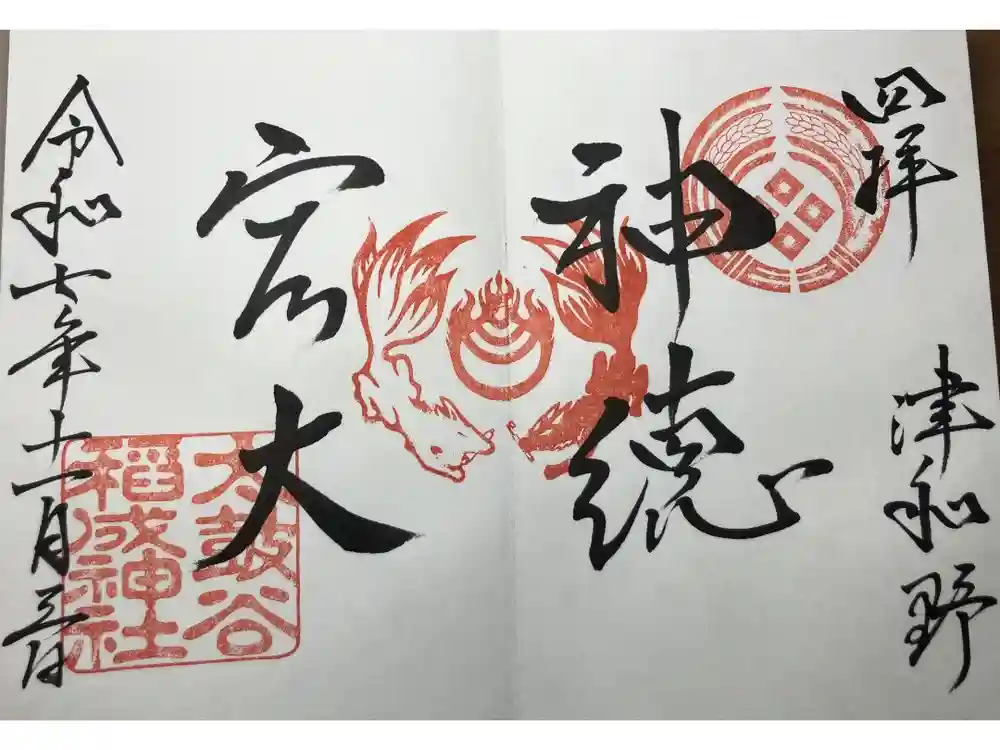 四拝
津和野
神徳
宏大
太皷谷
稲成神社
令和七年十一月三日